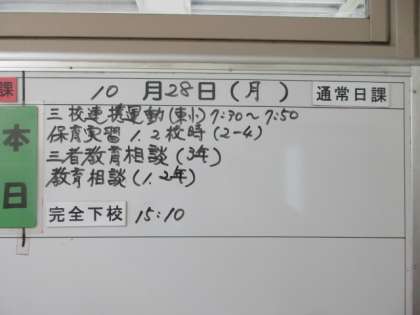 課 10月28日(月) 通常日課
本日
三校連携運動(東小) 7:30〜7:50
保育実習 1.2校時(2-4)
三者教育相談(3年)
教育相談(1.2年)
完全下校 15:10